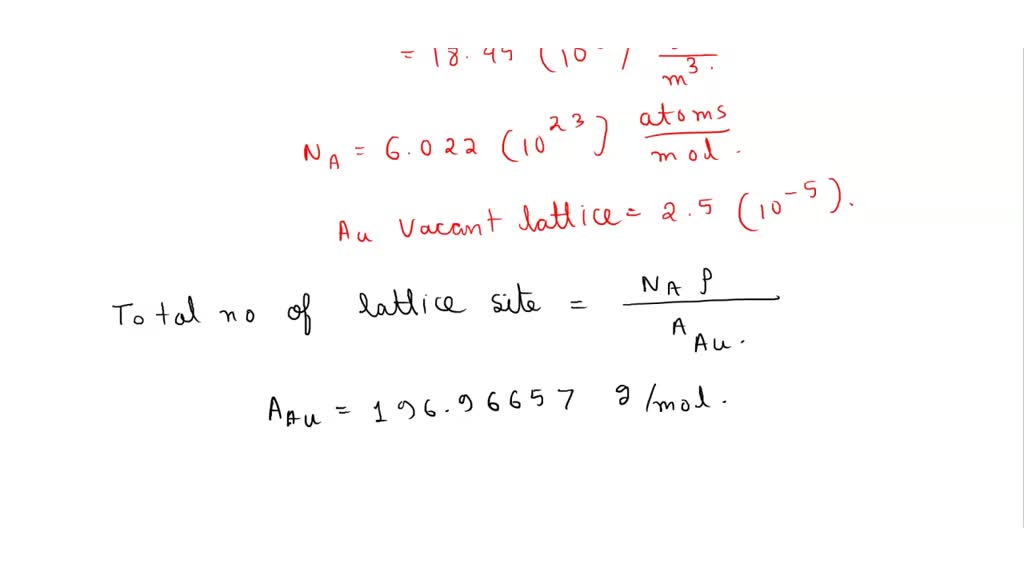 = 18.45 (10
m³.
N_A = 6.022 (10²³) atoms/mol.
Au vacant lattice = 2.5 (10⁻⁵).
Total no of lattice site = N_A ρ / A_Au.
A_Au = 196.96657 g/mol.